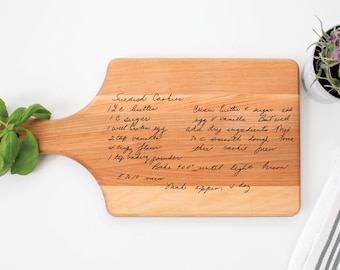 Swedish Cookies
1 2 c butter
1 c sugar
1 well beaten egg
2 tsp vanilla
flour
1 tsp baking powder
Cream butter & sugar add
egg & vanilla Beat well
add dry ingredients
smooth dough
cookie press
Bake 400° until light brown
8 to 10 min
Make approx 4 doz